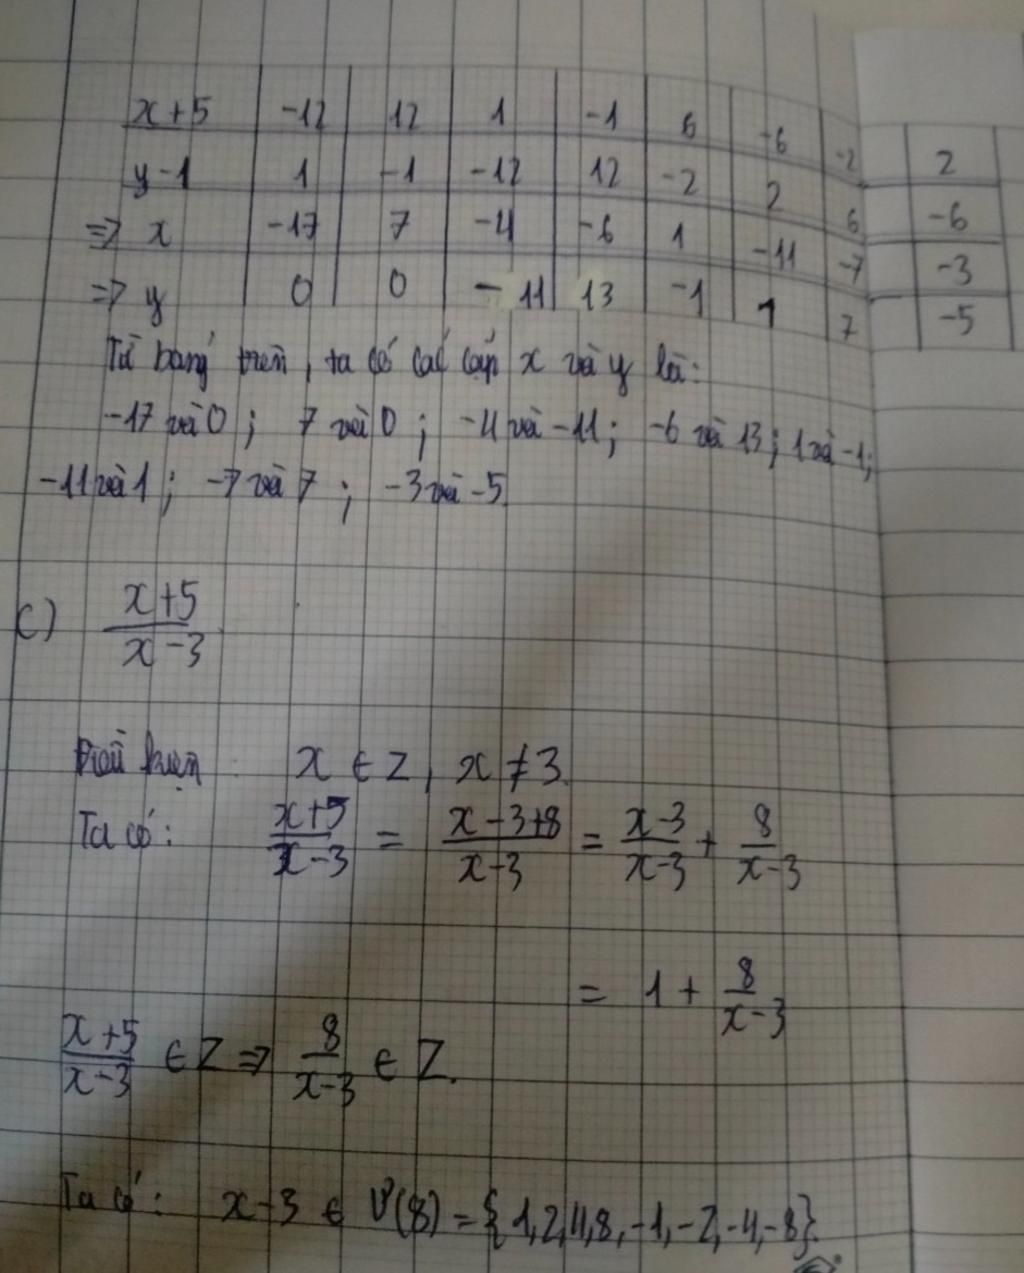 x+5 | -12 | 12 | 1 | -1 | 6 | -6 | -2 | 2
y-1 | 1 | -1 | -12 | 12 | -2 | 2 | 6 | -6
=> x | -17 | 7 | -4 | -6 | 1 | -11 | -7 | -3
=> y | 0 | 0 | -11 | 13 | -1 | 1 | 7 | -5
Từ bảng trên, ta có các cặp x và y là:
-17 và 0; 7 và 0; -4 và -11; -6 và 13; 1 và -1;
-11 và 1; -7 và 7; -3 và -5
c) (x+5)/(x-3)
Điều kiện: x ∈ Z, x ≠ 3.
Ta có: (x+5)/(x-3) = (x-3+8)/(x-3) = (x-3)/(x-3) + 8/(x-3)
= 1 + 8/(x-3)
(x+5)/(x-3) ∈ Z => 8/(x-3) ∈ Z.
Ta có: x-3 ∈ Ư(8) = {1,2,4,8,-1,-2,-4,-8}.